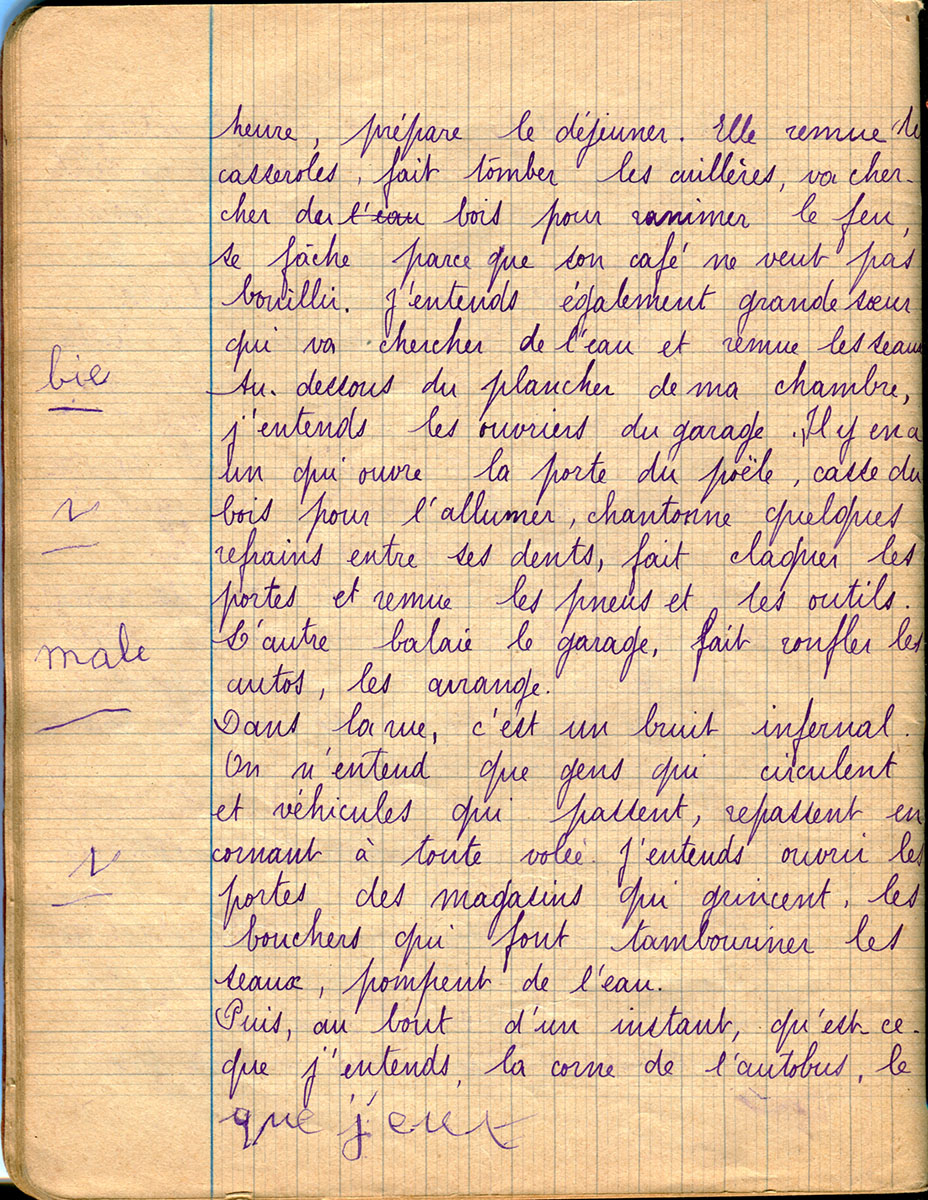 heure, prépare le déjeuner. Elle remue
casseroles, fait tomber les cuillères, va cher-
cher du l'eau bois pour ranimer le feu,
se fâche parce que son café ne veut pas
bouillir. J'entends également grande sœur
qui va chercher de l'eau et remue les seaux
bie
Au-dessous du plancher de ma chambre,
j'entends les ouvriers du garage. Il y en a
un qui ouvre la porte du poële, casse du
bois pour l'allumer, chantonne quelques
refrains entre ses dents, fait claquer les
portes et remue les pneus et les outils.
male
L'autre balaie le garage, fait ronfler les
autos, les arrange.
Dans la rue, c'est un bruit infernal.
On n'entend que gens qui circulent
et véhicules qui passent, repassent en
cornant à toute volée. J'entends ouvrir les
portes des magasins qui grincent, les
bouchers qui font tambouriner les
seaux, pompent de l'eau.
Puis, au bout d'un instant, qu'est-ce-
que j'entends, la corne de l'autobus, le
que j'eux